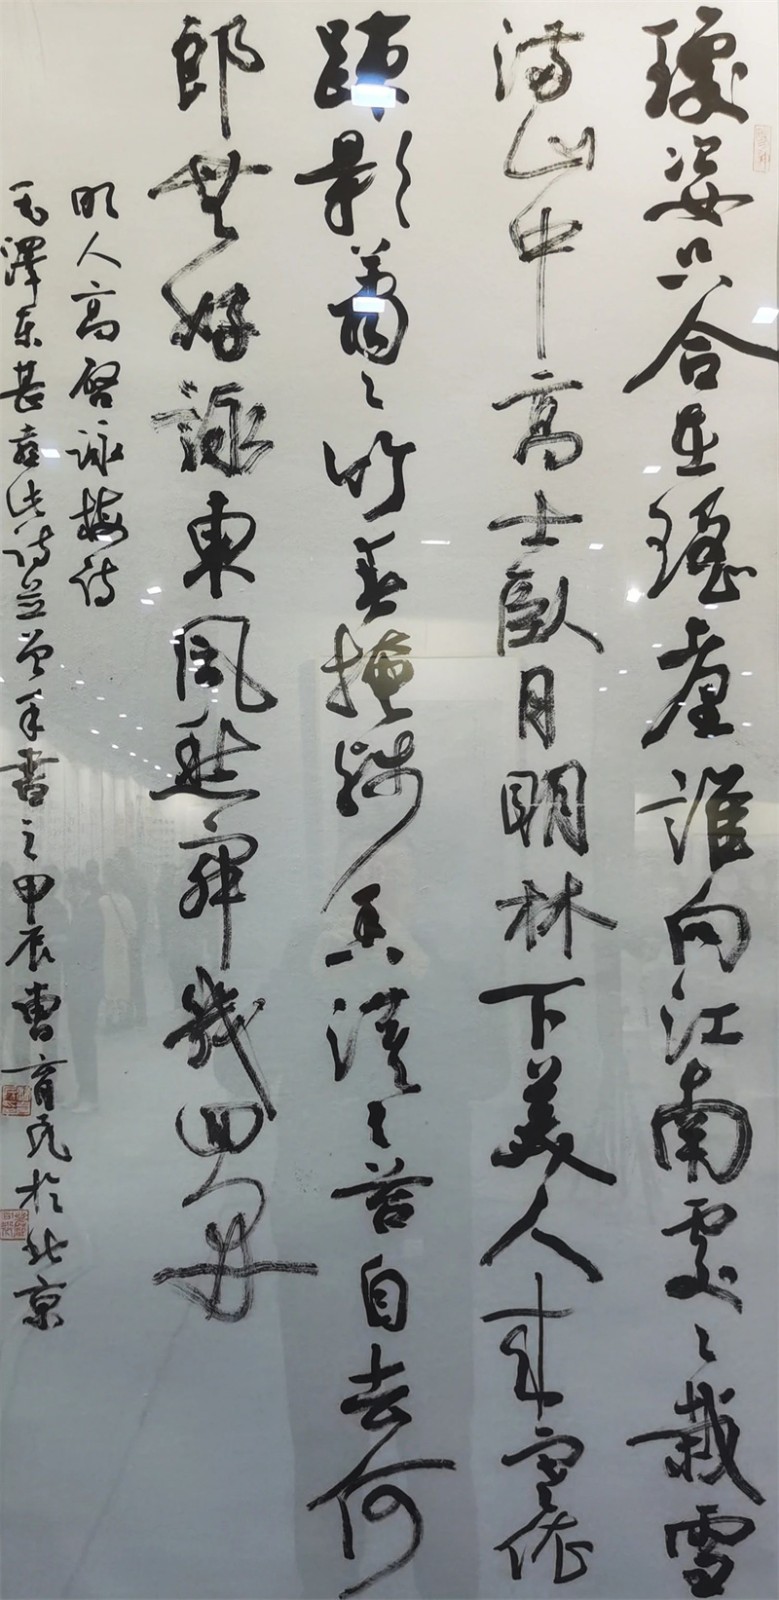 瓊姿只合在瑤臺誰向江南處々栽雪
滿山中高士臥月明林下美人來寒依
踈影蕭々竹春掩殘香漠々苔自去何
郎無好詠東風愁寂幾回開
明人高啓詠梅詩
毛澤東甚喜此詩並曾手書之甲辰曹育民於北京